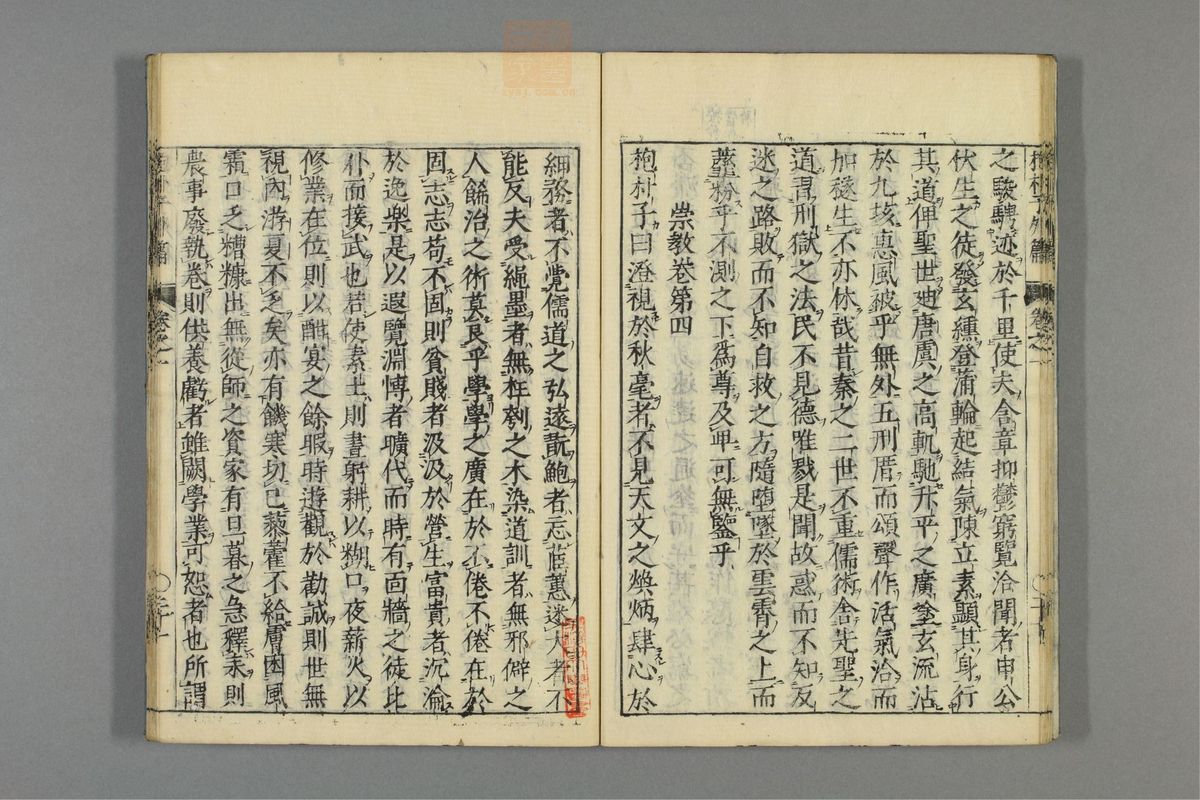 之駿騁迹於千里使夫含章抑鬱窮覽洽聞者申公
伏生之徒發玄纁登蒲輪起結氣陳立素顯其身行
其道俾聖世廸唐虞之高軌馳升平之廣塗玄流沾
於九垓惠風被乎無外五刑厝而頌聲作活氣洽而
加穟生不亦休哉昔秦之二世不重儒術舍先聖之
道習刑獄之法民不見德唯戮是聞故惑而不知反
迷之路敗而不知自救之方隨墮墜於雲霄之上而
虀粉乎不測之下爲尊及呷可無鑒乎
崇教卷第四
抱朴子曰澄視於秋毫者不見天文之煥炳肆心於
細務者不覺儒道之弘遠翫鮑者忘茝蕙迷大者不
能反夫受繩墨者無枉刳之木染道訓者無邪僻之
人餙治之術莫良乎學學之廣在於不倦不倦在於
固志志苟不固則貧賤者汲汲於營生富貴者沉淪
於逸樂是以遐覽淵慱者曠代而時有面牆之徒比
朴而接武也若使素士則晝躬耕以糊口夜薪火以
修業在位則以酣宴之餘暇時遊觀於勸誡則世無
視內游夏不乏矣亦有饑寒切己藜藿不給膚困風
霜口乏糟糠出無從師之資家有旦暮之急釋耒則
農事廢執卷則供養虧者雖闕學業可恕者也所謂